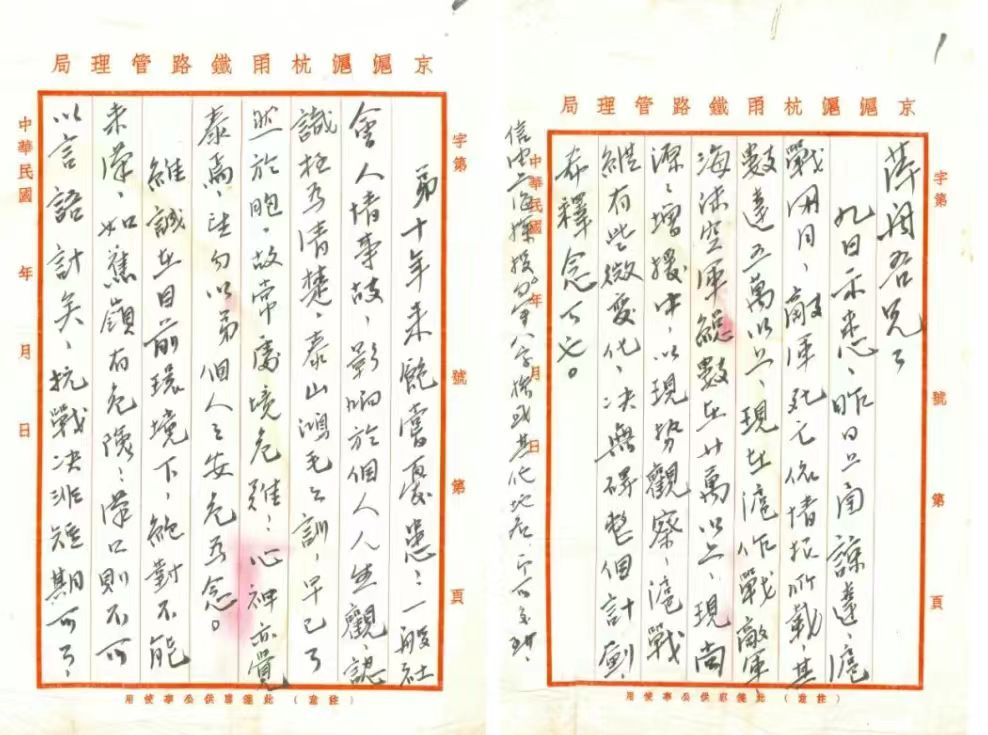 京滬滬杭甬鐵路管理局
字第 號 第 頁
萍閣吾兄：
九日示悉，昨日上函諒達，滬
戰開月，敵軍死亡依情報所載，其
數達五萬以上，現在滬作戰敵軍，
海陸空軍總數在廿萬以上，現尚
源源增援中，以現勢觀察，滬戰
縱有些微變化，决無礙整個計劃，
希釋念可也。
信由上海探投勿寫八字橋或其他地名，亦可
中華民國 年 月 日
(注意)此箋專供公事使用
京滬滬杭甬鐵路管理局
字第 號 第 頁
弟十年來飽嘗憂患：一般社
會人情事故，影响於個人人生觀，認
識極為清楚，泰山鴻毛之訓，早已了
然於胞，故常處境危難，心神亦覺
泰焉，望勿以弟個人之安危為念。
維誠在目前環境下，絕對不能
来漢，如蕉嶺有危險：漢口則不可
以言語計矣，抗戰决非短期可了，
中華民國 年 月 日
(注意)此箋專供公事使用